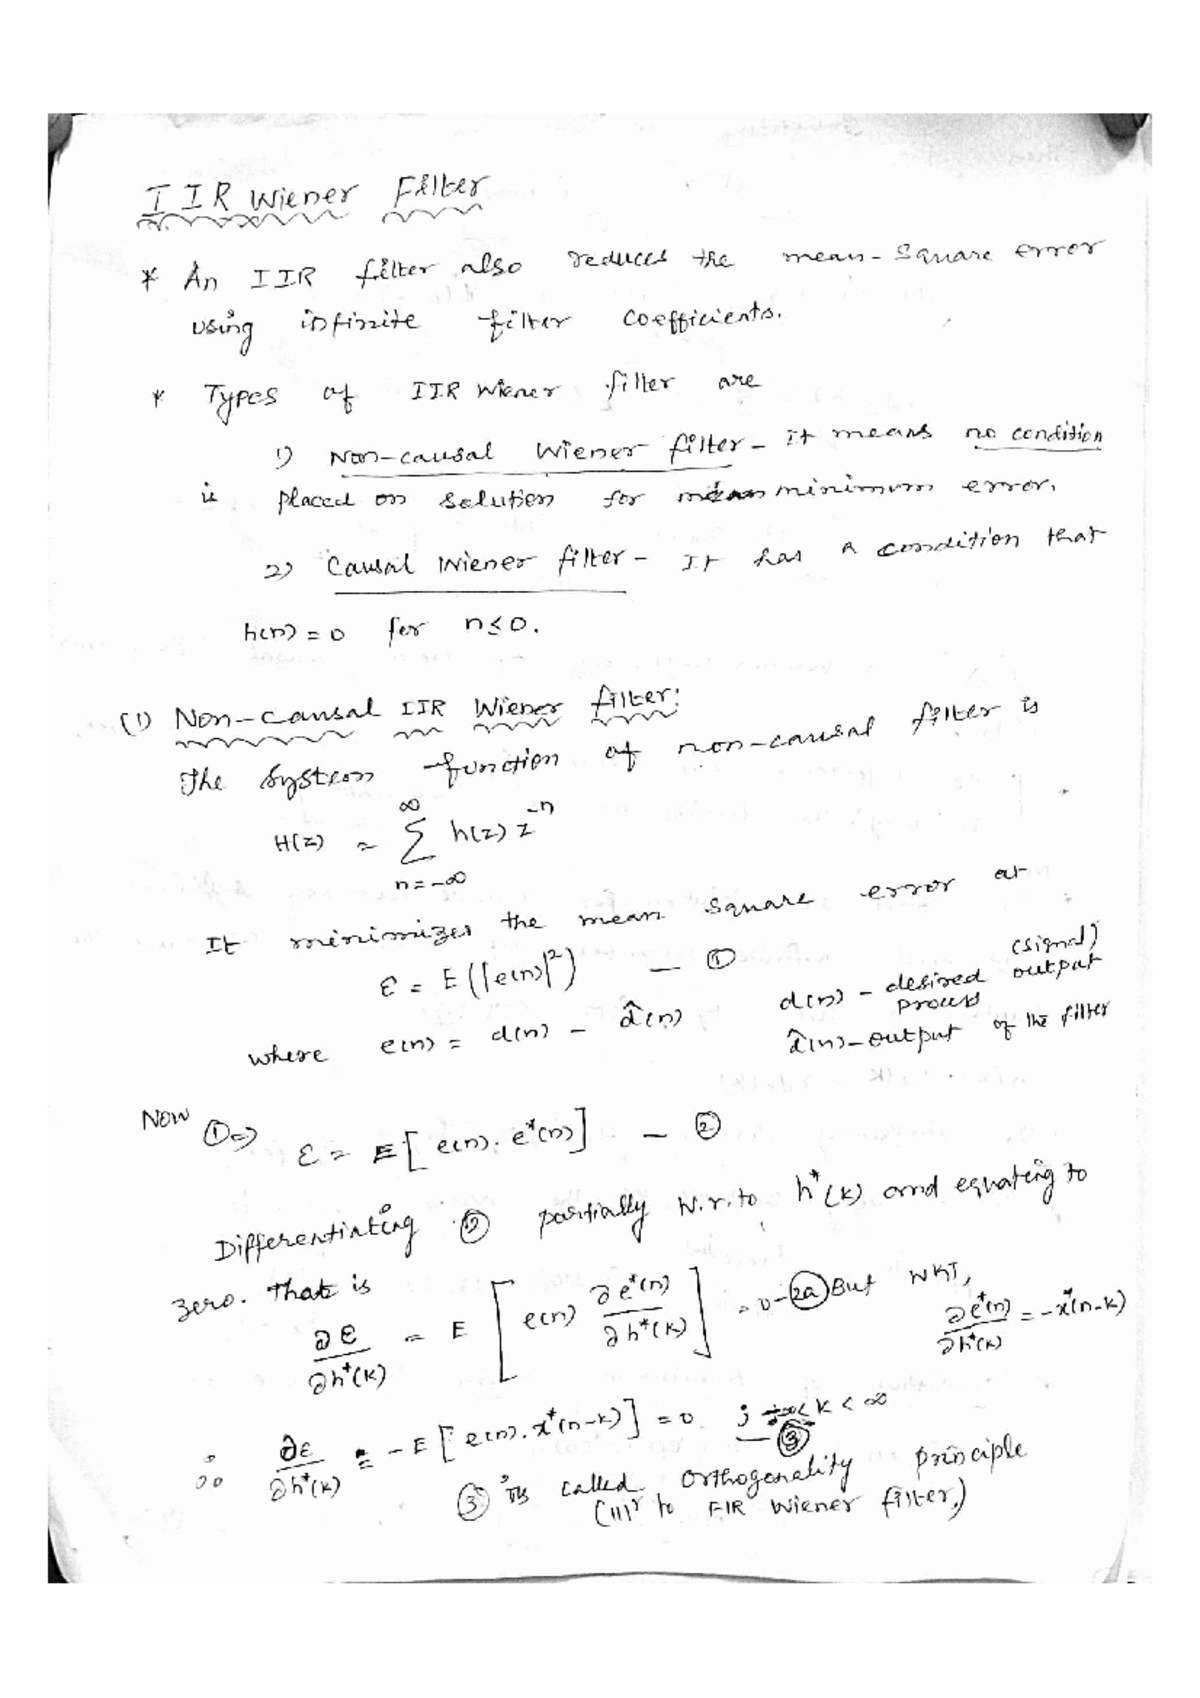 IIR Wiener Filter
* An IIR filter also reduces the mean-square error
using infinite filter coefficients.
* Types of IIR Wiener filter are
1) Non-causal Wiener filter - It means no condition
is placed on solution for minimum error.
2) Causal Wiener filter - It has a condition that
h(n) = 0 for n ≤ 0.
(1) Non-causal IIR Wiener filter:
The system function of non-causal filter is
H(z) = ∑_{n=-∞}^{∞} h(z) z^{-n}
It minimizes the mean square error at
ε = E(|e(n)|²) — ①
where e(n) = d(n) - d̂(n)
d(n) - desired output (signal) process
d̂(n) - output of the filter
Now ① ⇒ ε = E[e(n). e*(n)] — ②
Differentiating ② partially w.r.to h*(k) and equating to
zero. That is
∂ε/∂h*(k) = E[e(n) ∂e*(n)/∂h*(k)] = 0 - (2a) But WKT, ∂e*(n)/∂h*(k) = -x*(n-k)
∴ ∂ε/∂h*(k) = -E[e(n). x*(n-k)] = 0 ; -∞ < k < ∞ — ③
③ is called orthogonality principle
(|||ʳ to FIR Wiener filter.)